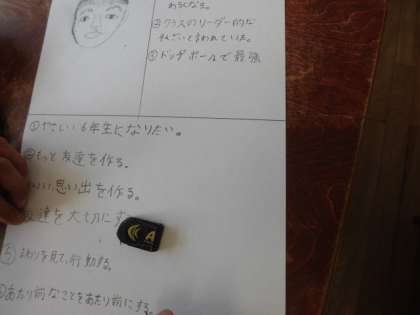 わらになる。
②クラスのリーダー的な
そんざいと言われている。
③ドッヂボールで最強
①やさしい6年生になりたい。
②もっと友達を作る。
思い出を作る。
友達を大切にす
⑤まわりを見て、行動する。
あたり前なことをあたり前にする。
A